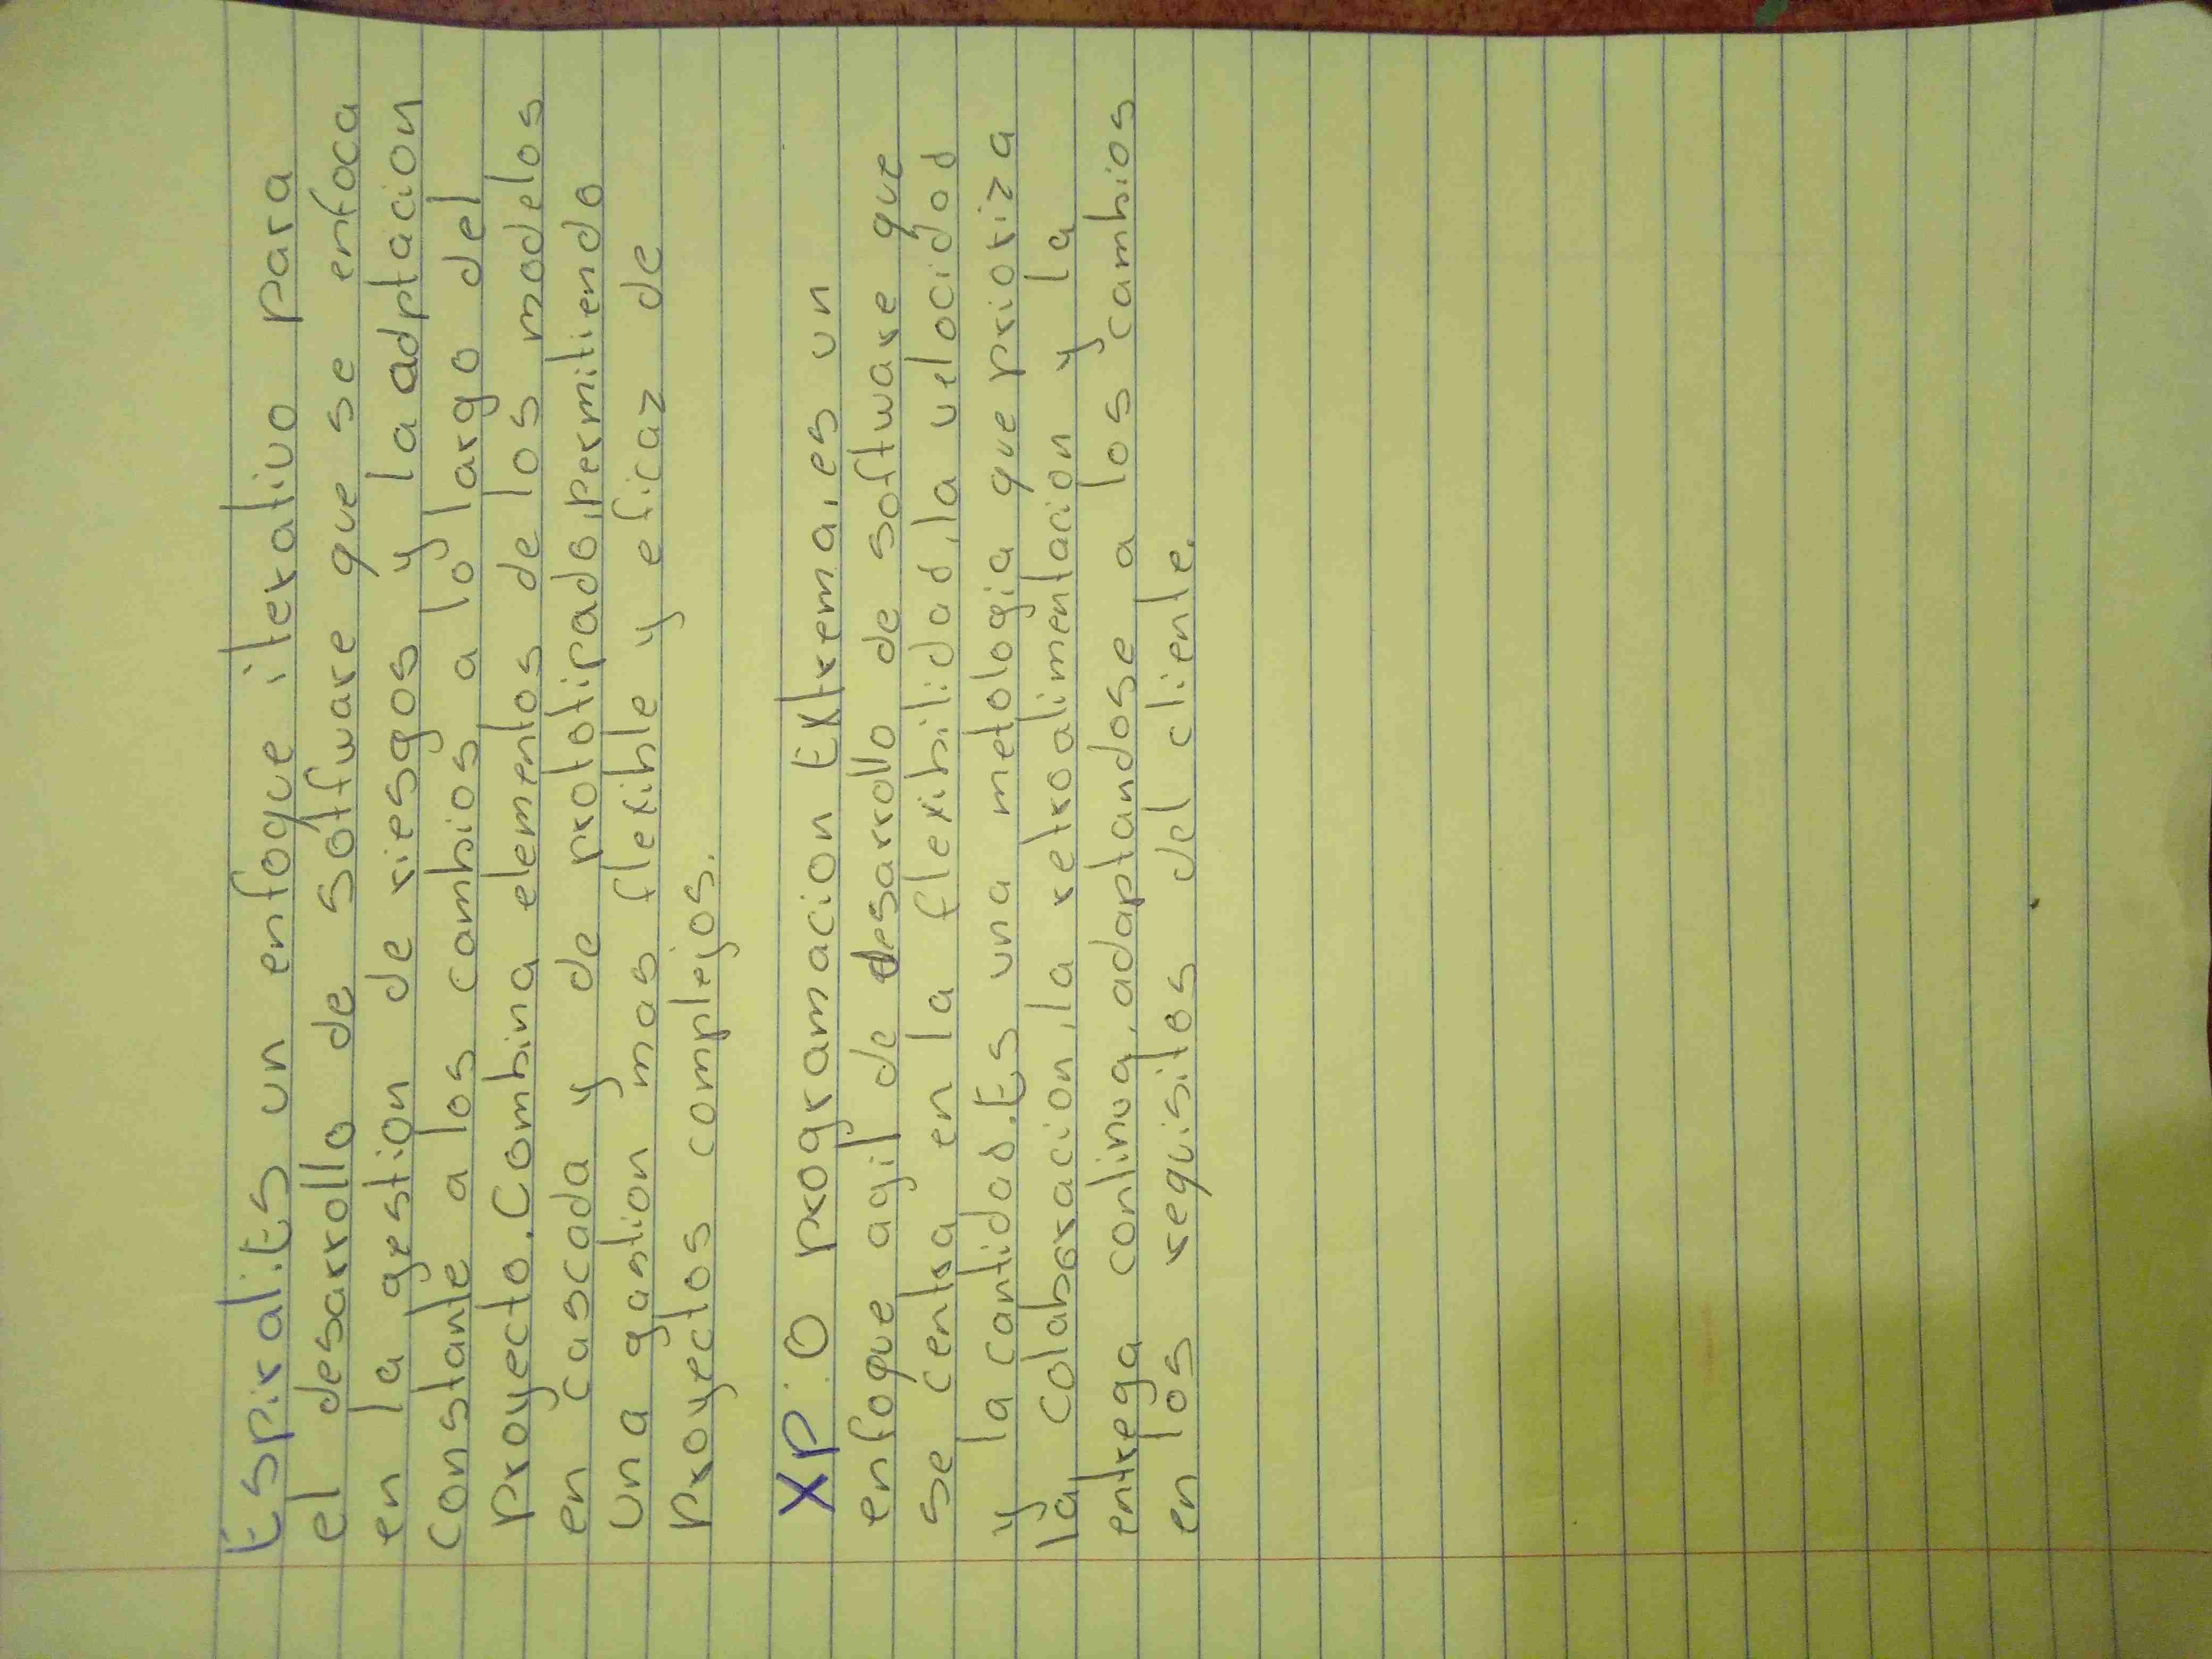 Espiral: Es un enfoque iterativo para
el desarrollo de software que se enfoca
en la gestion de riesgos y la adptacion
constante a los cambios a lo largo del
proyecto. Combina elementos de los modelos
en cascada y de prototipado, permitiendo
una gastion mas flexible y eficaz de
proyectos complejos.
XP: O programacion Extrema, es un
enfoque agil de desarrollo de software que
se centra en la flexibilidad, la velocidad
y la cantidad. Es una metologia que prioriza
la colaboracion, la retroalimentacion y la
entrega continua, adaptandose a los cambios
en los requisitos del cliente.